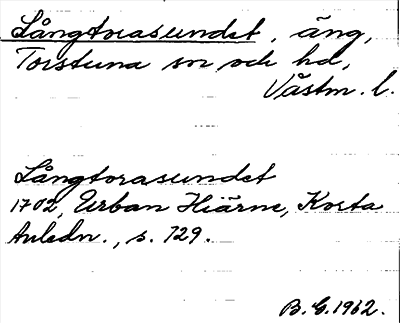 Långtorasundet, äng,
Torstuna sn och hd,
Västm. l.
Långtorasundet
1702, Urban Hiärne, Korta
Anledn., s. 729.
B.G.1962.